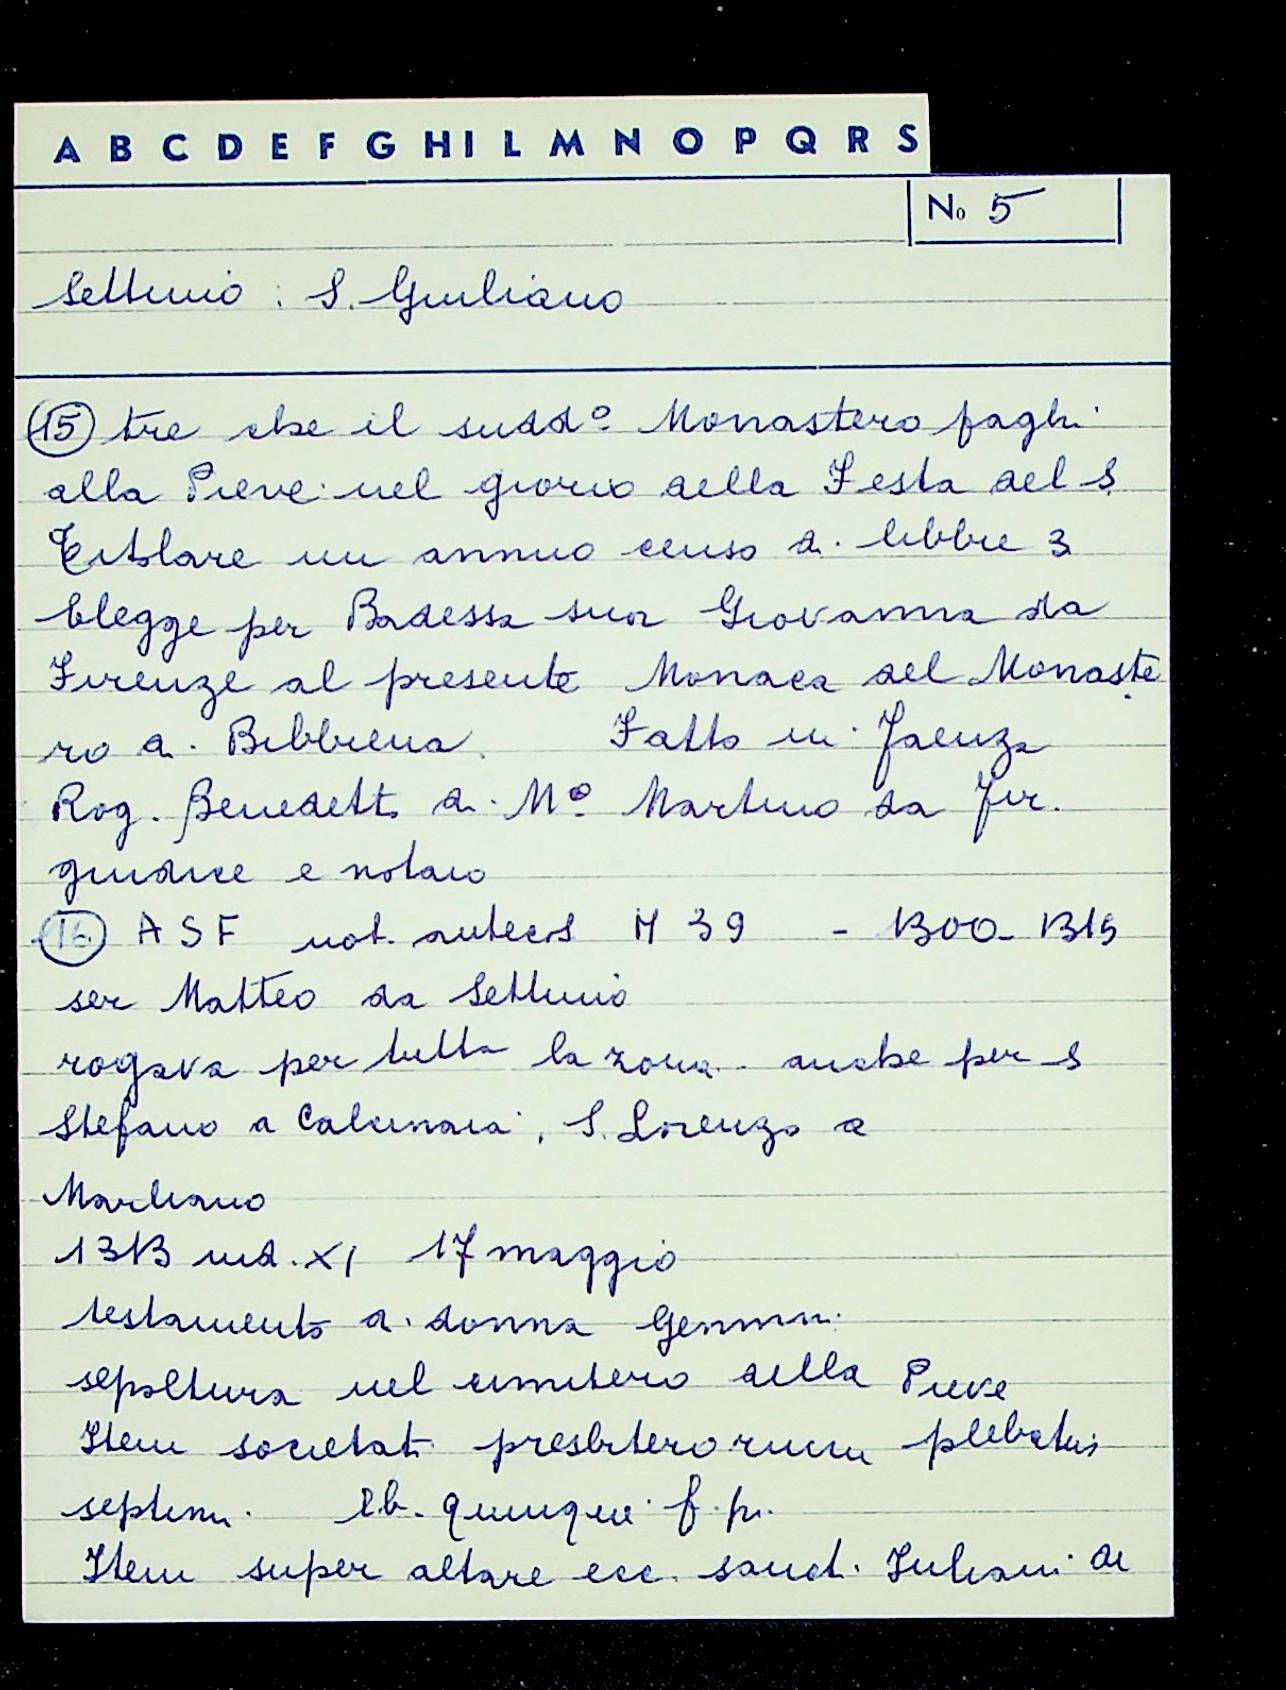 A B C D E F G H I L M N O P Q R S
No 5
Settimo : S. Giuliano
(15) tre che il sudd° Monastero paghi
alla Pieve nel giorno della Festa del S.
Titolare un annuo censo di libbre 3
Elegge per Badessa suor Giovanna da
Firenze al presente Monaca del Monaste
ro di Bibbiena. Fatto in Faenza
Rog. Benedetto di M° Martino da Fir.
giudice e notaio
(16) ASF not. antecos M 39 - 1300-1315
ser Matteo da Settimo
rogava per tutta la zona anche per S
Stefano a Calcinaia, S. Lorenzo a
Marliano
1313 ind. XI 17 maggio
testamento di donna Gemma
sepoltura nel cimitero della Pieve
Item societati presbiterorum plebatus
septimi lb. quinque f.p.
Item super altare ecc. sanct. Iuliani de